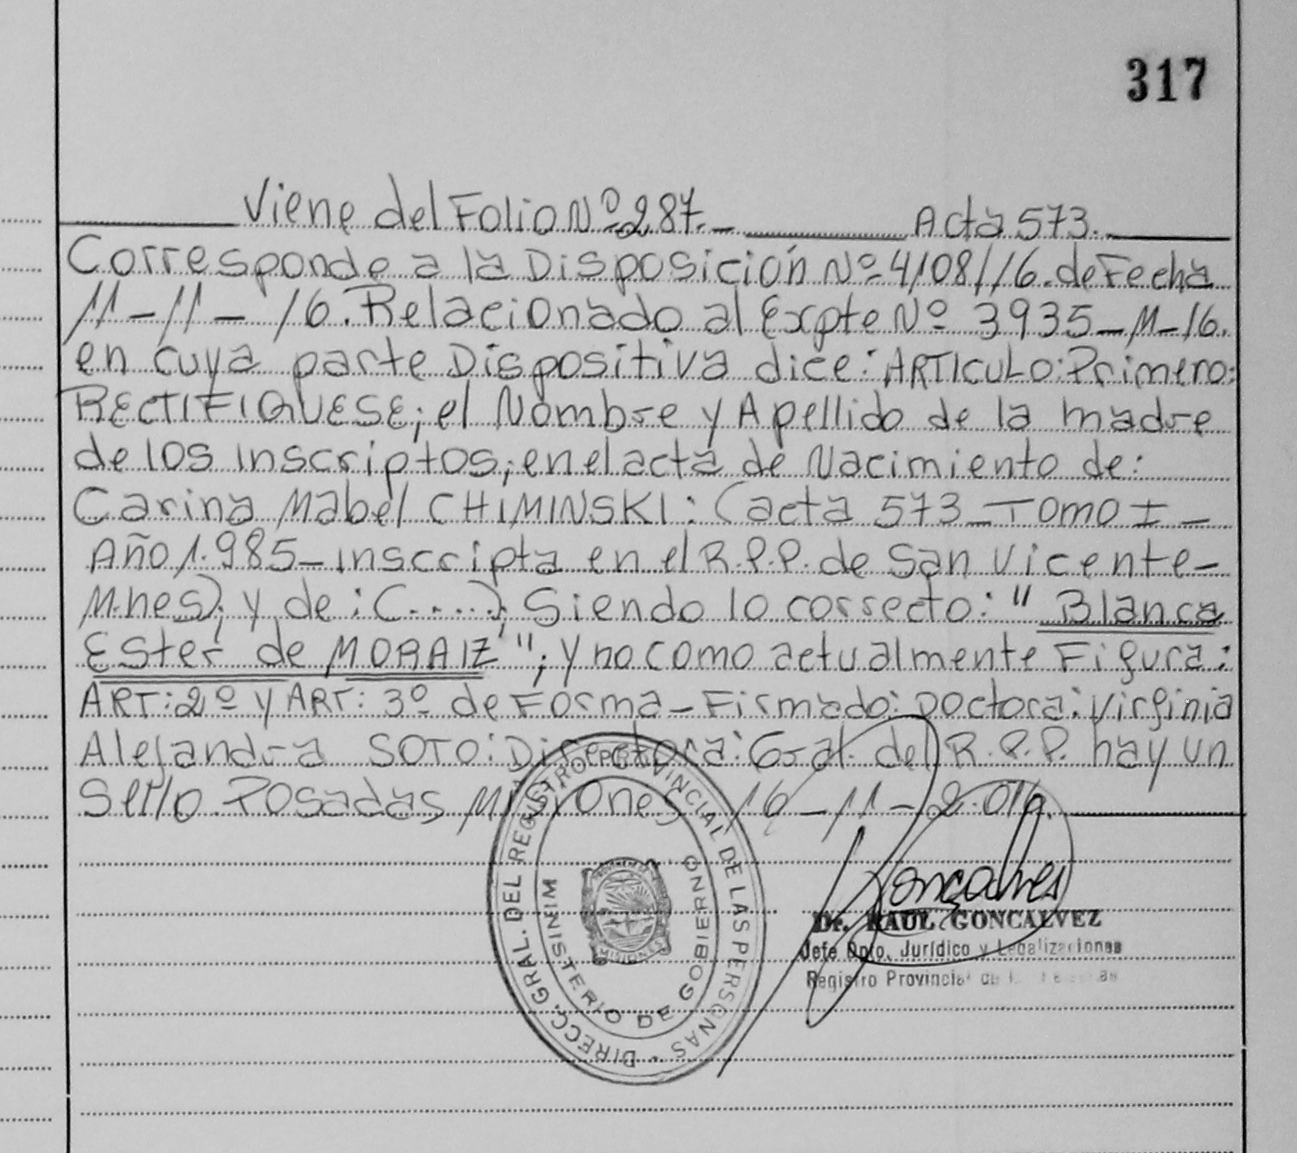 317
Viene del Folio Nº 287.- Acta 573.
Corresponde a la Disposición Nº 4108/16. de Fecha
11-11-16. Relacionado al Expte Nº 3935-M-16.
en cuya parte Dispositiva dice: ARTICULO: Primero:
RECTIFIQUESE; el Nombre y Apellido de la madre
de los inscriptos; en el acta de Nacimiento de:
Carina Mabel CHIMINSKI: (acta 573 - Tomo I -
Año 1.985 - inscripta en el R.P.P. de San Vicente -
M.nes); y de: (.....); Siendo lo correcto: "Blanca
Ester de MORAIZ"; y no como actualmente Figura:
ART: 2º y ART: 3º de Forma - Firmado: Doctora: Virginia
Alejandra SOTO: Directora: Gral. del R.P.P. hay un
Sello. Posadas Misiones 16-11-2.016.
DIRECC. GRAL. DEL REGISTRO PROVINCIAL DE LAS PERSONAS
MINISTERIO DE GOBIERNO
MISIONES
Goncalves
Dr. RAUL GONCALVEZ
Jefe Dpto. Jurídico y Legalizaciones
Registro Provincial